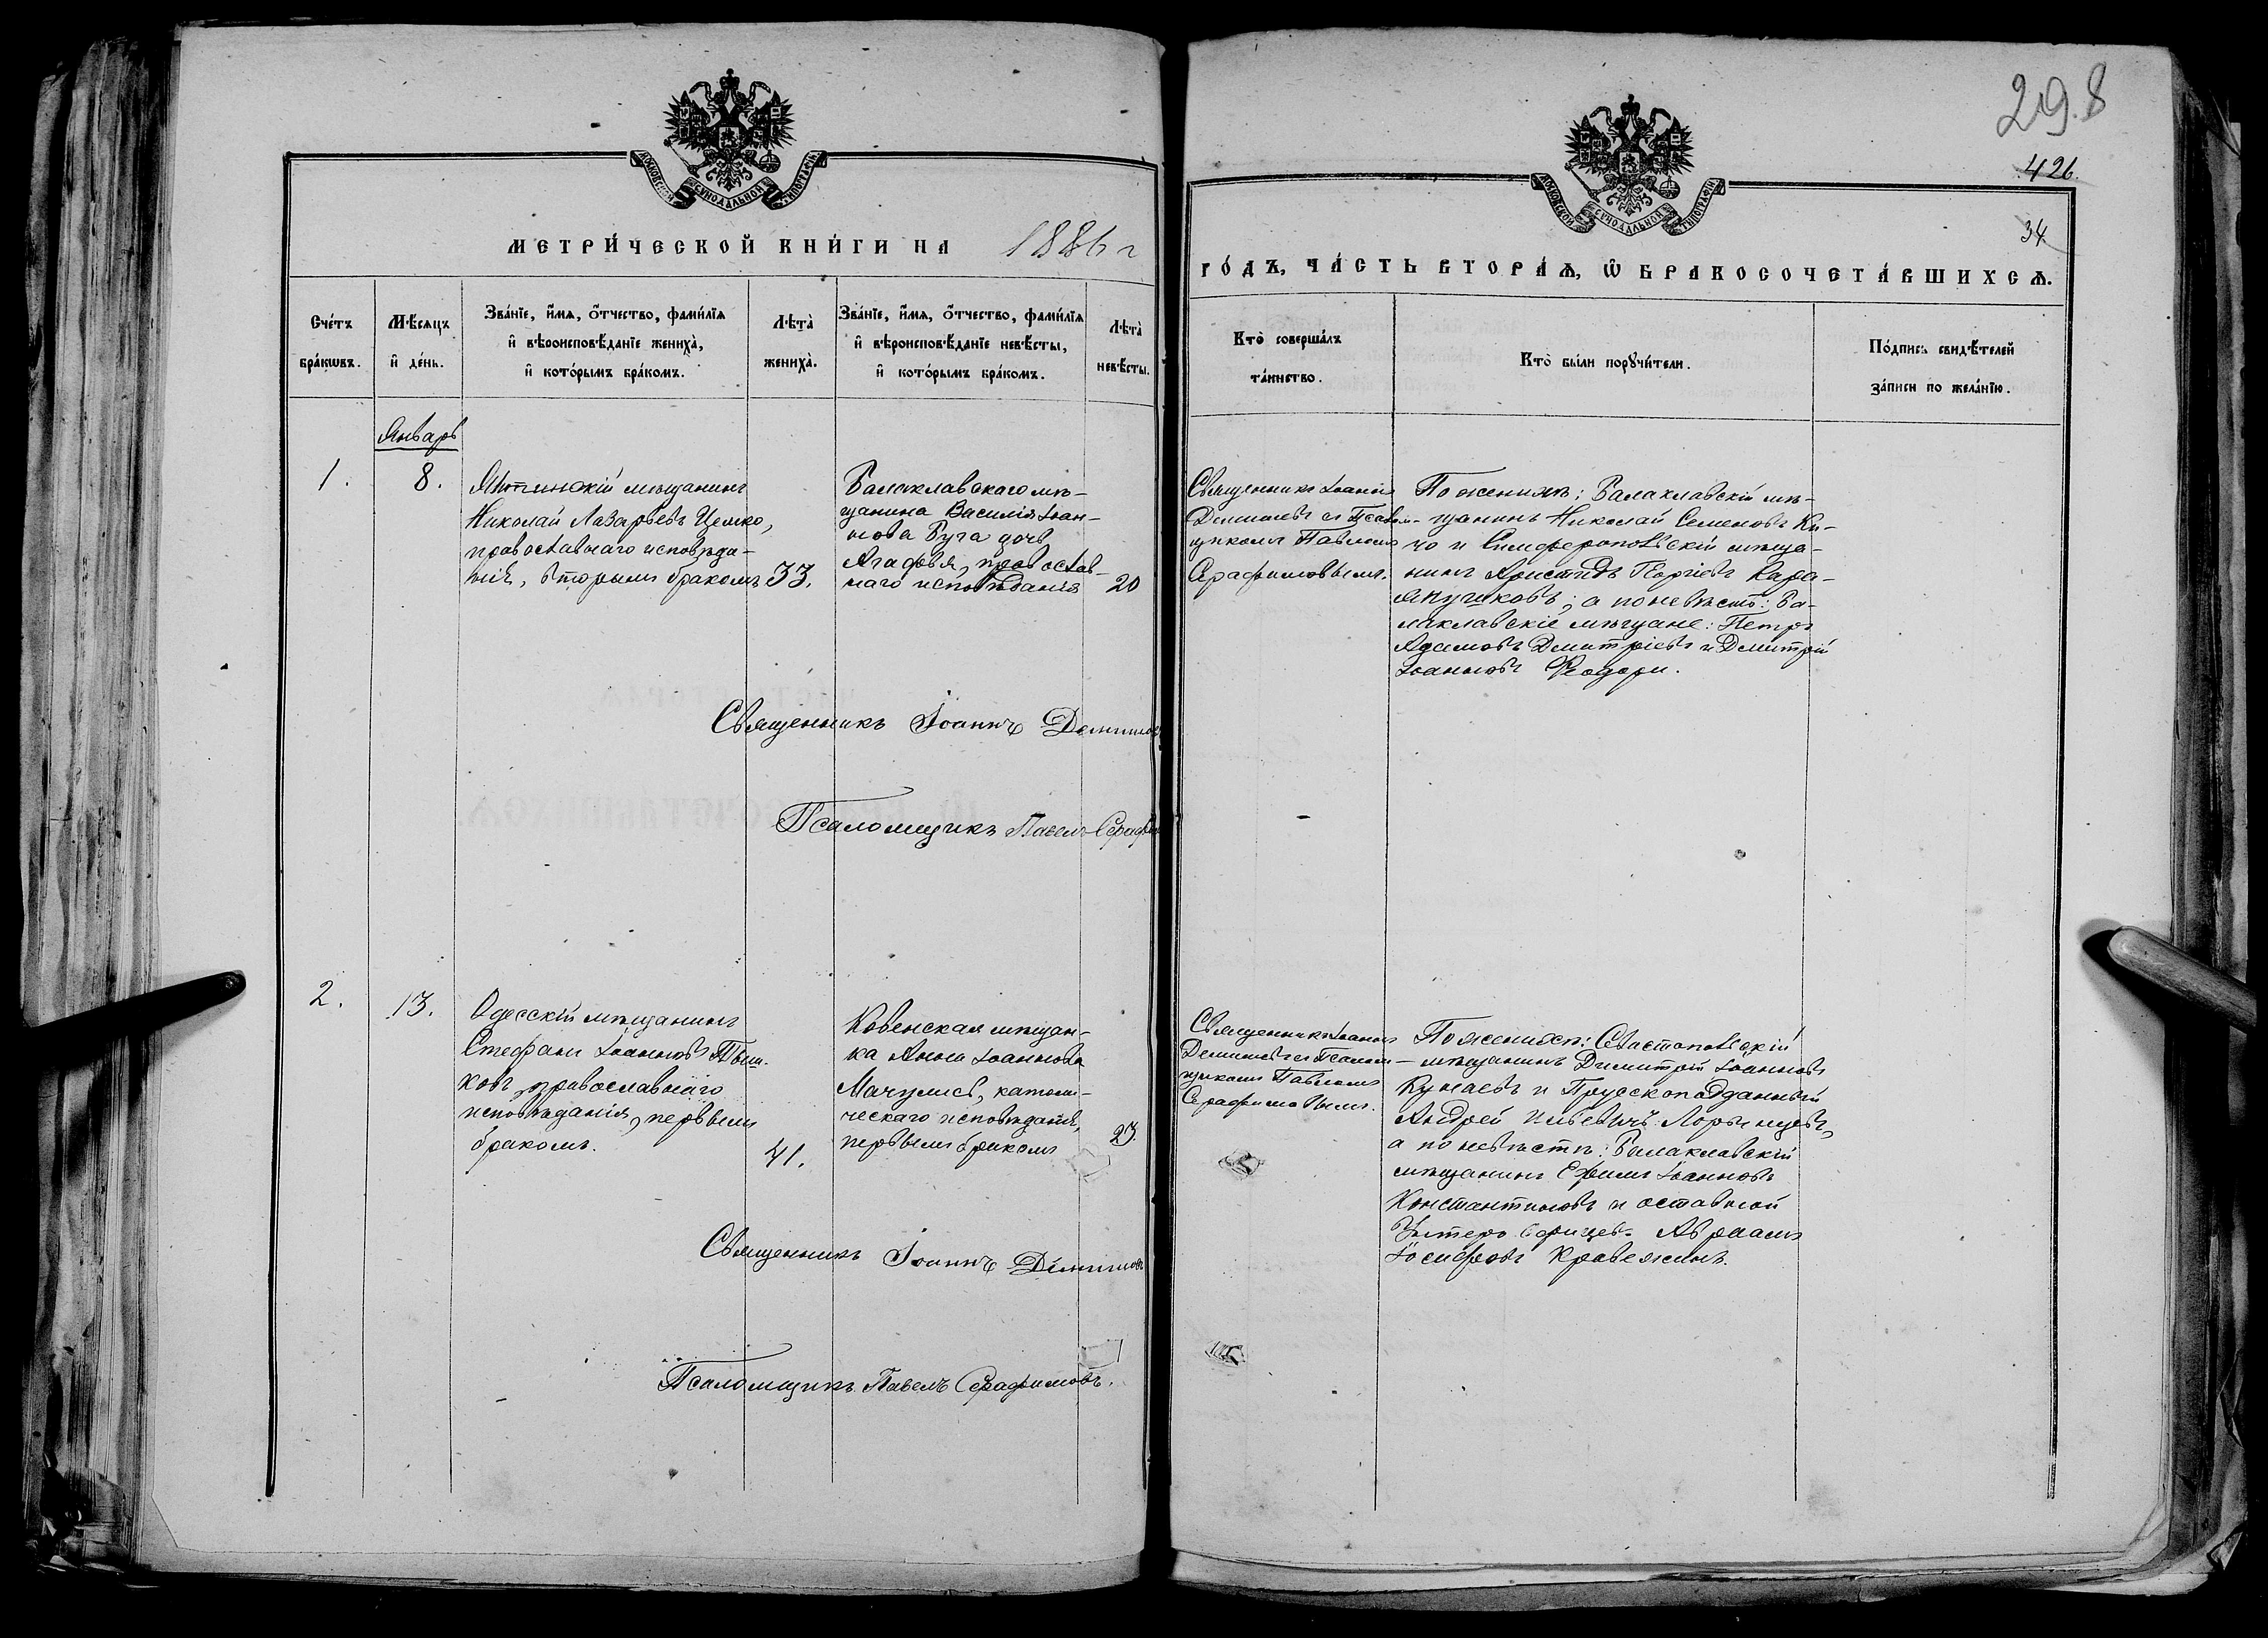 298
426
34
МОСКОВСКОЙ СѴНОДАЛЬНОЙ ТИПОГРАФІИ
МЕТРИ́ЧЕСКОЙ КНИ́ГИ НА 1886 г
Сче́тъ бра́кѡвъ.
Мѣ́сяцъ и҆ де́нь.
Зва́нїе, и҆́мѧ, ѻ҆́тчество, фами́лїѧ
и҆ вѣроисповѣ́данїе жениха̀,
и҆ кото́рымъ бра́комъ.
Лѣта̀ жениха̀.
Зва́нїе, и҆́мѧ, ѻ҆́тчество, фами́лїѧ
и҆ вѣроисповѣ́данїе невѣ́сты,
и҆ кото́рымъ бра́комъ.
Лѣта̀ невѣ́сты.
Январь
1.
8.
Ялтинскій мѣщанинъ
Николай Лазарьевъ Цемко,
православнаго исповѣда-
нія, вторымъ бракомъ
33.
Балаклавскаго мѣ-
щанина Василія Іоан-
нова Буга дочь
Агафья, православ-
наго исповѣданія
20
Священникъ Іоаннъ
Псаломщикъ Павелъ
2.
13.
Одесскій мѣщанинъ
Стефанъ Іоанновъ
ковъ, православнаго
исповѣданія, первымъ
бракомъ.
41.
Ковенская мѣщан-
ка Анна Іоаннова
Мачулисъ, католи-
ческаго исповѣданія,
первымъ бракомъ
23.
Священникъ Іоаннъ
Псаломщикъ Павелъ Серафимовъ.
МОСКОВСКОЙ СѴНОДАЛЬНОЙ ТИПОГРАФІИ
ГО́ДЪ, ЧА́СТЬ ВТОРА́Ѧ, Ѡ҆ БРАКОСОЧЕТА́ВШИХСѦ.
Кто̀ соверша́лъ
та́инство.
Кто̀ бы́ли порꙋчи́тели.
По́дпись свидѣ́телей
за́писи по жела́нїю.
Священникъ Іоаннъ
съ Псалом-
щикомъ Павломъ
Серафимовымъ.
По женихѣ: Балаклавскій мѣ-
щанинъ Николай Семеновъ Ки-
чо и Симферопольскій мѣща-
нинъ Аристидъ Георгіевъ Кара-
япучковъ; а по невѣстѣ: Ба-
лаклавскіе мѣщане: Петръ
Адамовъ Дмитріевъ и Дмитрій
Іоанновъ Феодори.
Священникъ Іоаннъ
съ Псалом-
щикомъ Павломъ
Серафимовымъ.
По женихѣ: Севастопольскій
мѣщанинъ Димитрій Іоанновъ
Кунаевъ и Прусскоподданный
Андрей
а по невѣстѣ: Балаклавскій
мѣщанинъ Ефимъ Іоанновъ
Константиновъ и оставной
Унтеръ Офицеръ Авраамъ
Іосифовъ Кравежинъ.